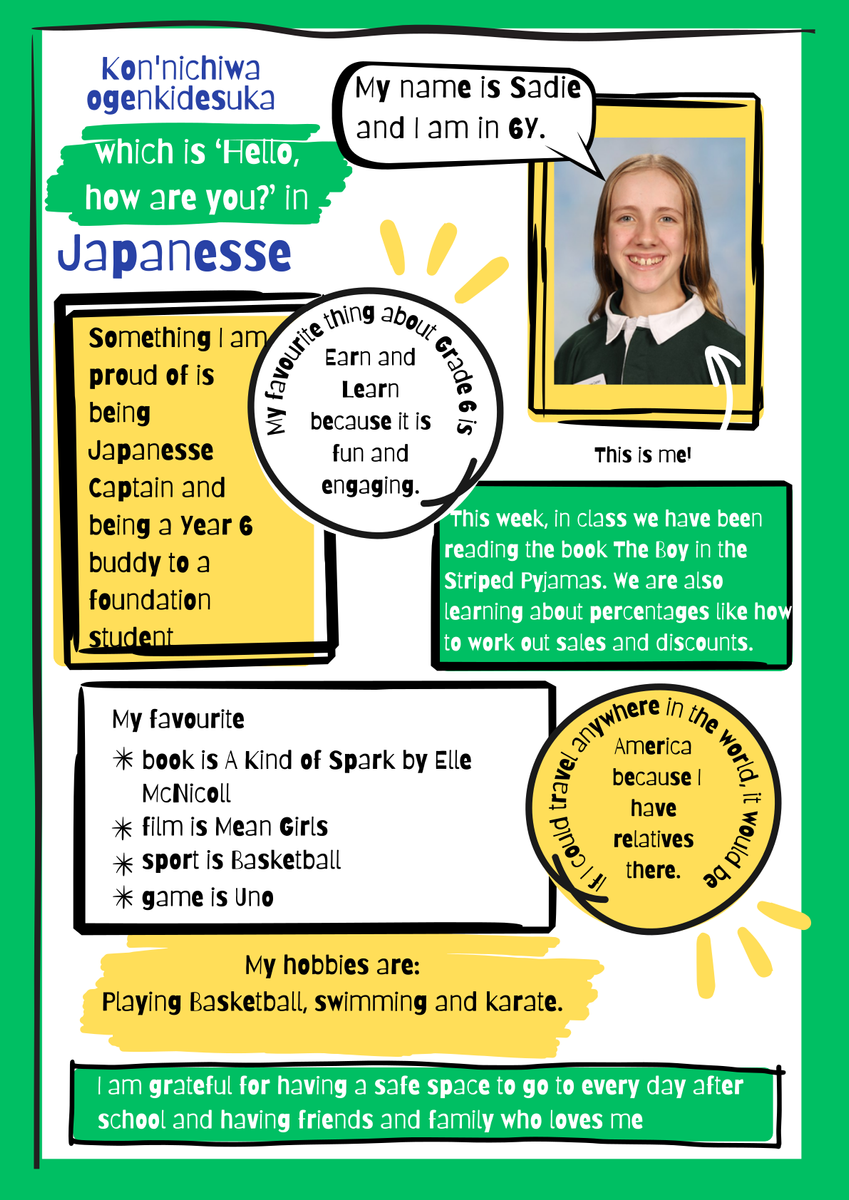 Kon'nichiwa
ogenkidesuka
which is ‘Hello,
how are you?’ in
Japanesse
My name is Sadie
and I am in 6Y.
This is me!
Something I am
proud of is
being
Japanesse
Captain and
being a Year 6
buddy to a
foundation
student
My favourite thing about Grade 6 is
Earn and
Learn
because it is
fun and
engaging.
This week, in class we have been
reading the book The Boy in the
Striped Pyjamas. We are also
learning about percentages like how
to work out sales and discounts.
My favourite
book is A Kind of Spark by Elle
McNicoll
film is Mean Girls
sport is Basketball
game is Uno
If I could travel anywhere in the world, it would be
America
because I
have
relatives
there.
My hobbies are:
Playing Basketball, swimming and karate.
I am grateful for having a safe space to go to every day after
school and having friends and family who loves me